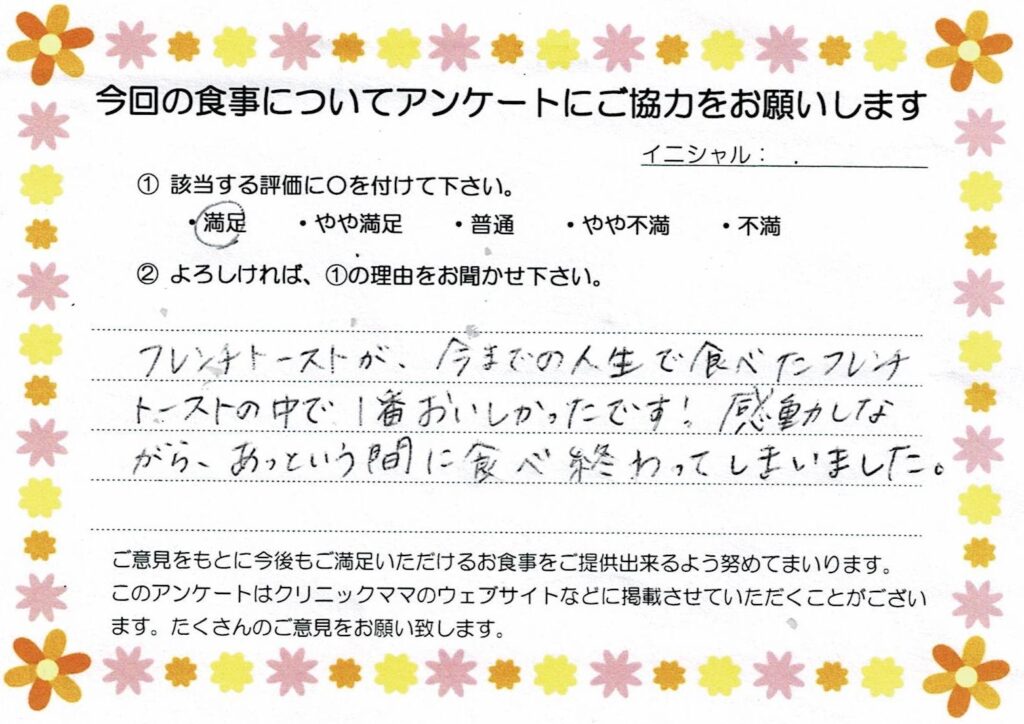 今回の食事についてアンケートにご協力をお願いします
イニシャル： .
① 該当する評価に〇を付けて下さい。
・満足 ・やや満足 ・普通 ・やや不満 ・不満
② よろしければ、①の理由をお聞かせ下さい。
フレンチトーストが、今までの人生で食べたフレンチ
トーストの中で1番おいしかったです！感動しな
がら、あっという間に食べ終わってしまいました。
ご意見をもとに今後もご満足いただけるお食事をご提供出来るよう努めてまいります。
このアンケートはクリニックママのウェブサイトなどに掲載させていただくことがござい
ます。たくさんのご意見をお願い致します。